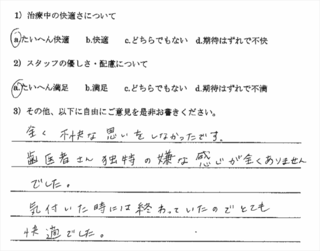 1) 治療中の快適さについて
a.たいへん快適 b.快適 c.どちらでもない d.期待はずれで不快
2) スタッフの優しさ・配慮について
a.たいへん満足 b.満足 c.どちらでもない d.期待はずれで不満
3) その他、以下に自由にご意見を是非お書きください。
全く不快な思いをしなかったです。
歯医者さん独特の嫌な感じが全くありません
でした。
気付いた時には終わっていたのでとても
快適でした。